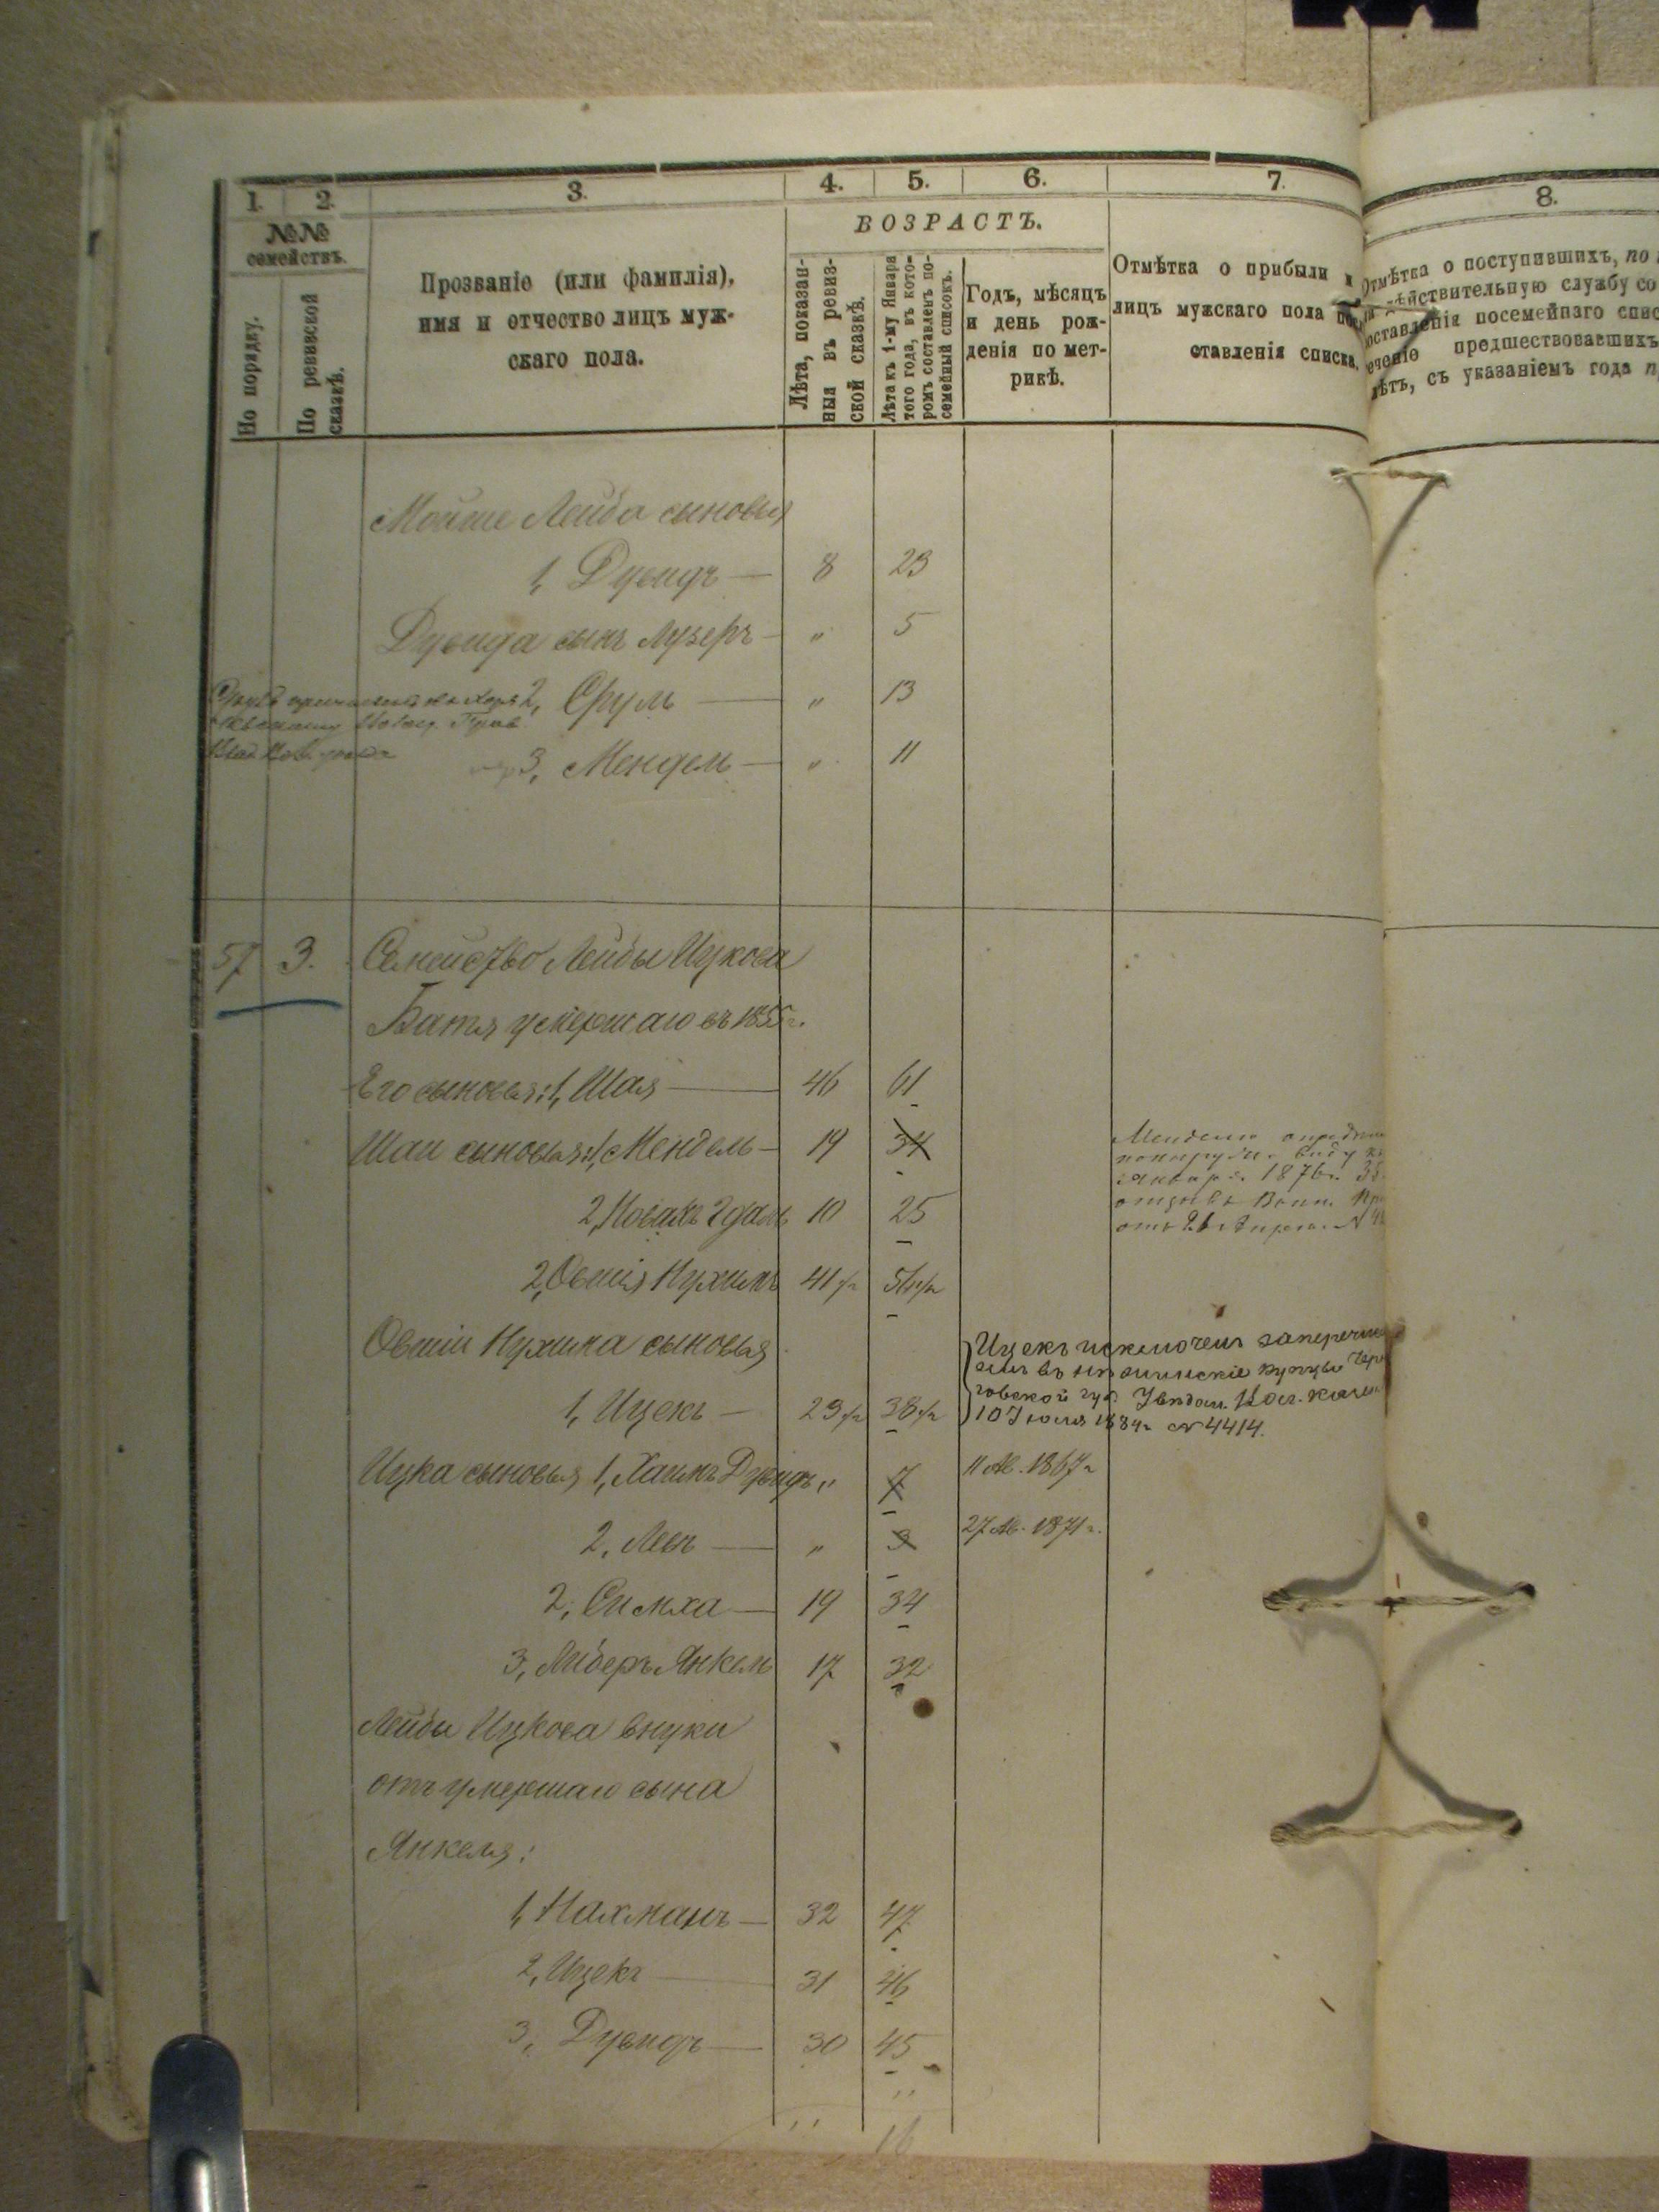 1. 2. 3. 4. 5. 6. 7. 8.
№№ семействъ.
По порядку.
По ревизской сказкѣ.
Прозваніе (или фамилія),
имя и отчество лицъ муж-
скаго пола.
ВОЗРАСТЪ.
Лѣта, показан-
ныя въ ревиз-
ской сказкѣ.
Лѣта къ 1-му Января
того года, въ кото-
ромъ составленъ по-
семейный списокъ.
Годъ, мѣсяцъ
и день рож-
денія по мет-
рикѣ.
Отмѣтка о прибыли и
лицъ мужскаго пола
ставленія списка.
Отмѣтка о поступившихъ, по
дѣйствительную службу со
оставленія посемейнаго спис
еченіе предшествовавшихъ
лѣтъ, съ указаніемъ года
Мойше Лейба сыновья
1, Дувидъ — 8 23
Дувида сынъ Лузеръ — " 5
2, Срулъ — " 13
3, Мендель — " 11
57 3. Семейство Лейбы Ицкова
Батя умершаго въ 1855 г.
Его сыновья: 1, Шая — 46 61
Шаи сыновья: 1, Мендель — 19 34
2, Новахъ Гдаль 10 25
2, Овшія Нухимъ 41
Овшіи Нухима сыновья
1, Ицекъ — 23 38
Ицекъ исключенъ
въ купцы
губ.
10 Іюля 1884 г. № 4414.
Ицка сыновья 1, Хаимъ Дувидъ " 7 11 Ав. 1867 г.
2, Леви — " 3 27 Ав. 1871 г.
2, Симха — 19 34
3, Либеръ Янкель 17 32
Лейбы Ицкова внуки
отъ умершаго сына
Янкеля:
1, Нахманъ — 32 47
2, Ицекъ — 31 46
3, Дувидъ — 30 45
Января 1876 г.
16